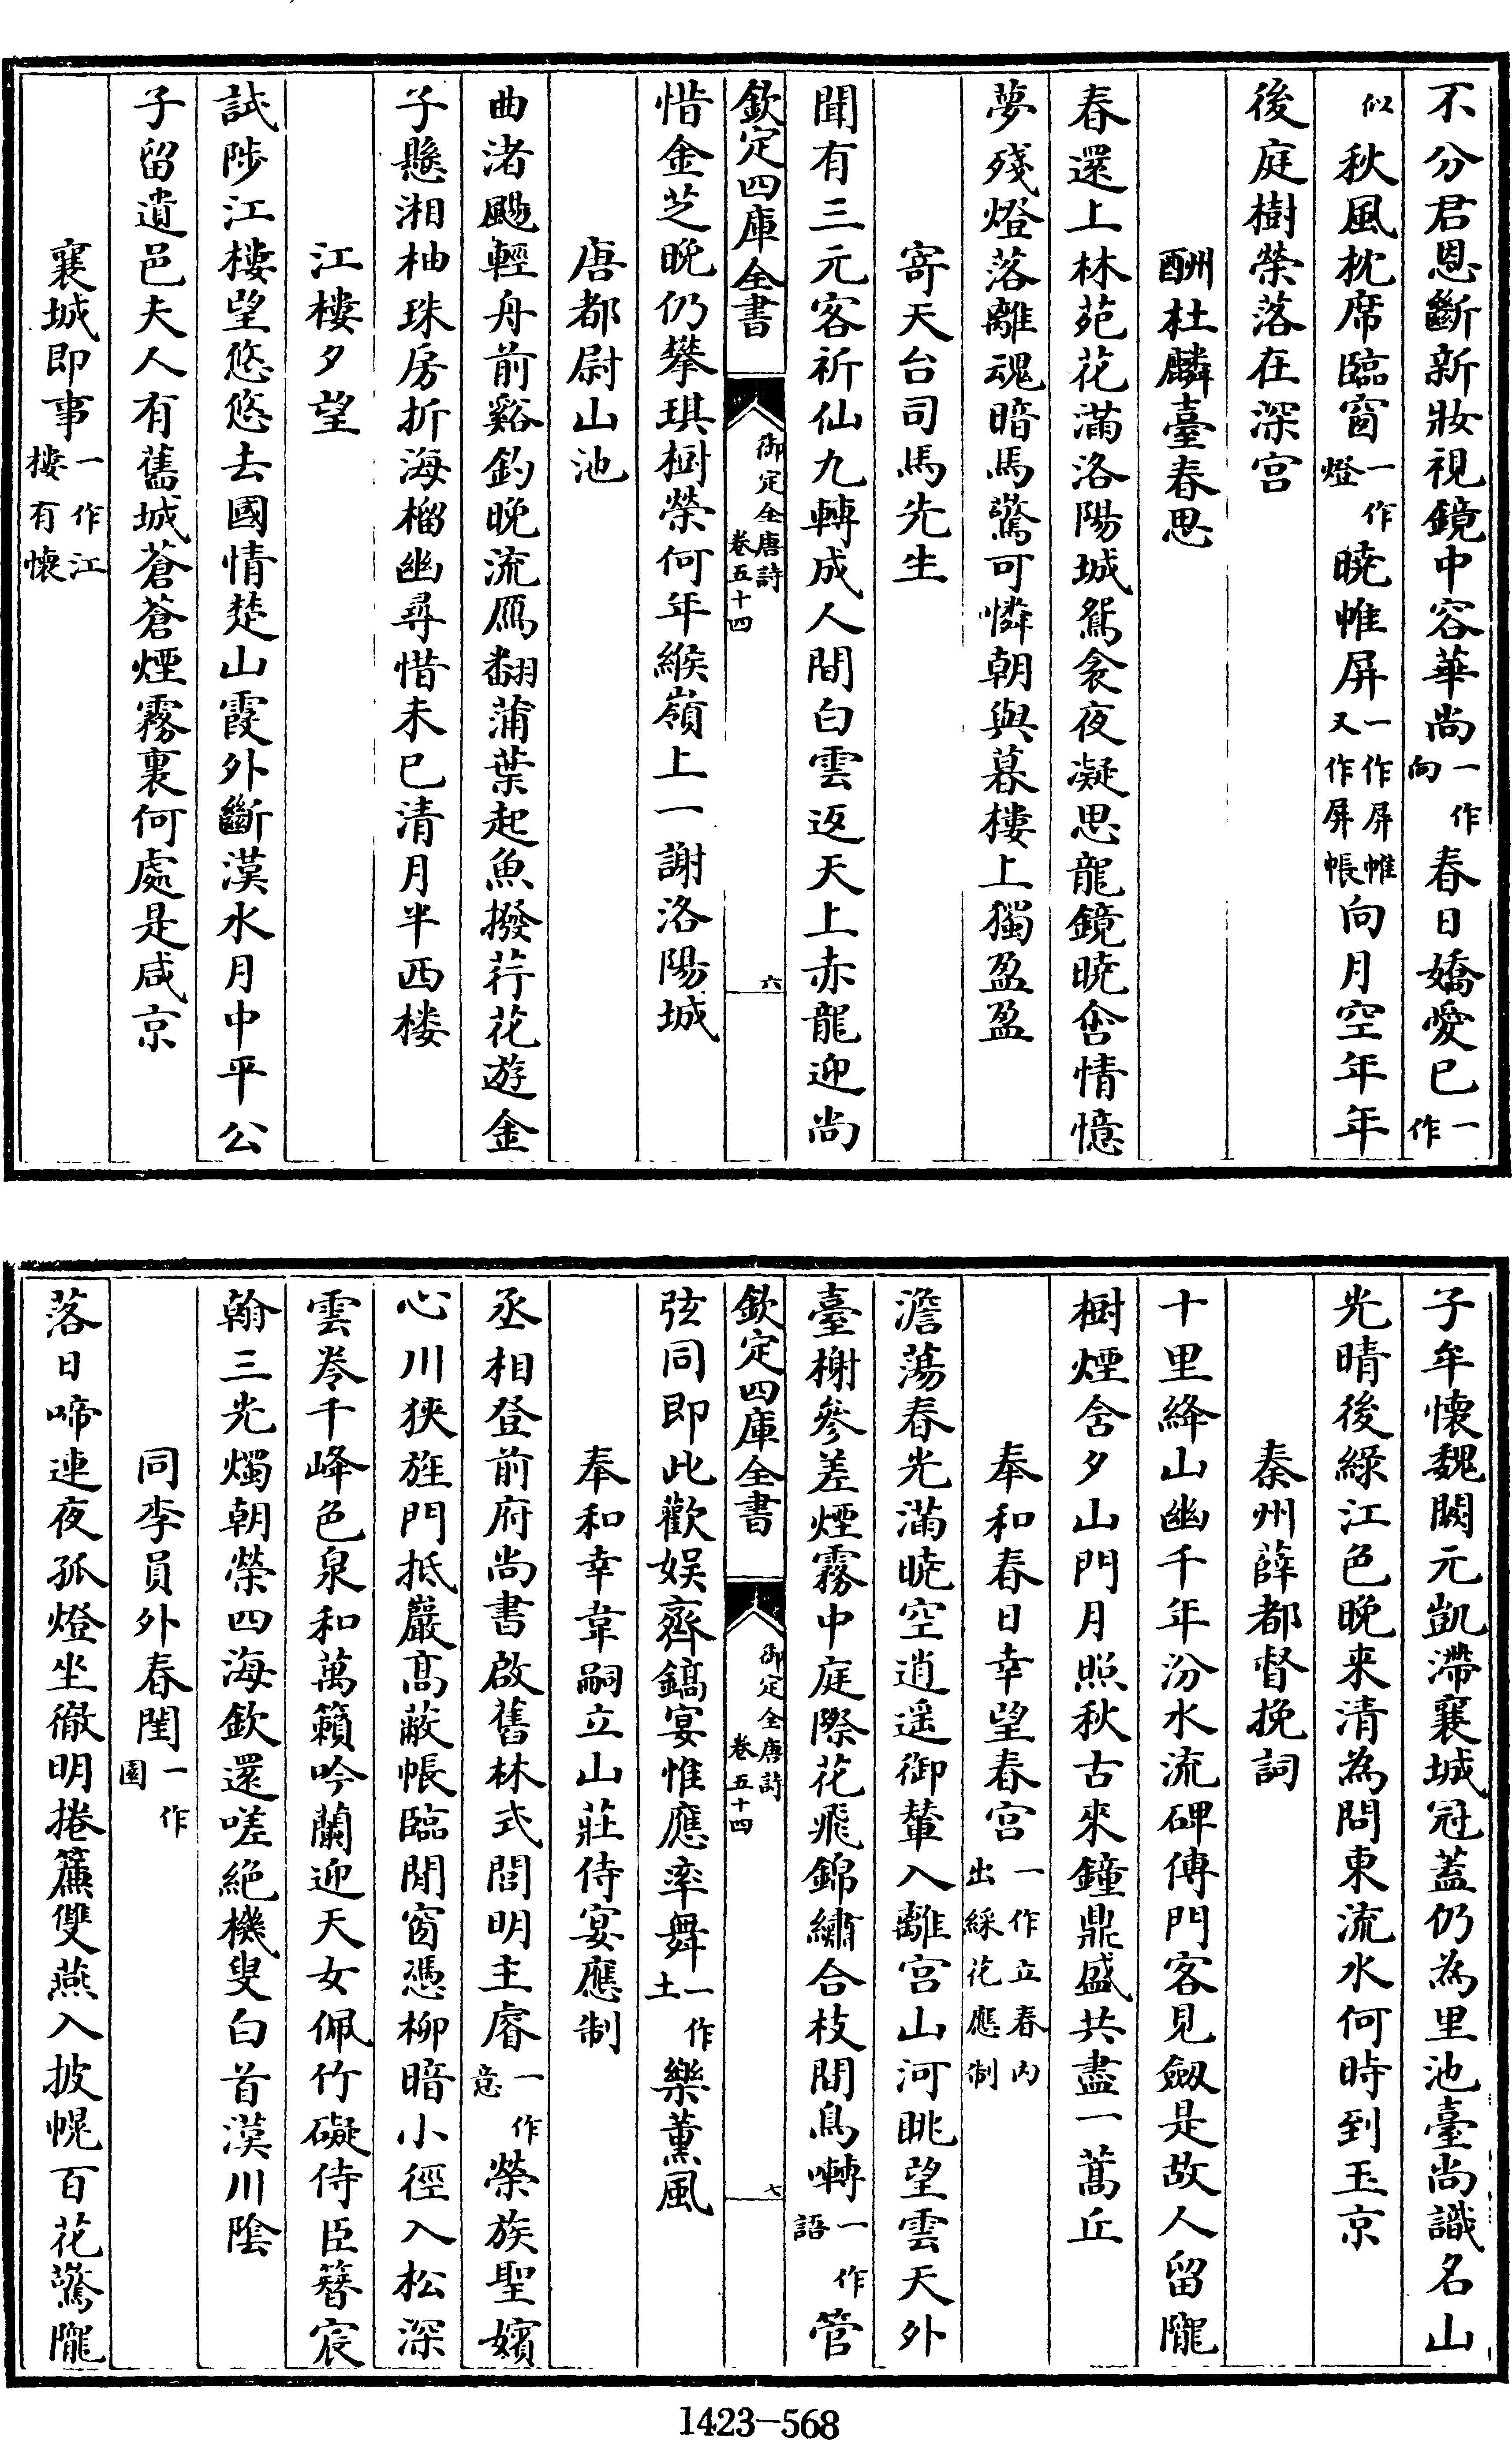 不分君恩斷新妝視鏡中容華尚一作向春日嬌愛已一作
似秋風枕席臨窗一作燈曉帷屏一作屏帷又作屏帳向月空年年
後庭樹榮落在深宫
酬杜麟臺春思
春還上林苑花滿洛陽城鴛衾夜凝思龍鏡曉含情憶
夢殘燈落離魂暗馬驚可憐朝與暮樓上獨盈盈
寄天台司馬先生
聞有三元客祈仙九轉成人間白雲返天上赤龍迎尚
欽定四庫全書 御定全唐詩 卷五十四 六
惜金芝晚仍攀琪樹榮何年緱嶺上一謝洛陽城
唐都尉山池
曲渚颺輕舟前谿釣晚流雁翻蒲葉起魚撥荇花遊金
子懸湘柚珠房折海榴幽尋惜未已清月半西樓
江樓夕望
試陟江樓望悠悠去國情楚山霞外斷漢水月中平公
子留遺邑夫人有舊城蒼蒼煙霧裏何處是咸京
襄城即事一作江樓有懷
子牟懷魏闕元凱滯襄城冠蓋仍為里池臺尚識名山
光晴後綠江色晚来清為問東流水何時到玉京
秦州薛都督挽詞
十里絳山幽千年汾水流碑傳門客見劔是故人留隴
樹煙含夕山門月照秋古來鐘鼎盛共盡一蒿丘
奉和春日幸望春宫一作立春内出綵花應制
澹蕩春光滿曉空逍遥御輦入離宫山河眺望雲天外
臺榭參差煙霧中庭際花飛錦繡合枝間鳥囀一作語管
欽定四庫全書 御定全唐詩 卷五十四 七
弦同即此歡娱齊鎬宴惟應率舞一作土樂薰風
奉和幸韋嗣立山莊侍宴應制
丞相登前府尚書啟舊林式閭明主睿一作意榮族聖嬪
心川狹旌門抵巖髙蔽帳臨閒窗憑柳暗小徑入松深
雲卷千峰色泉和萬籟吟蘭迎天女佩竹礙侍臣簪宸
翰三光燭朝榮四海欽還嗟絶機叟白首漢川陰
同李員外春閨一作園
落日啼連夜孤燈坐徹明捲簾雙燕入披幌百花驚隴
1423-568